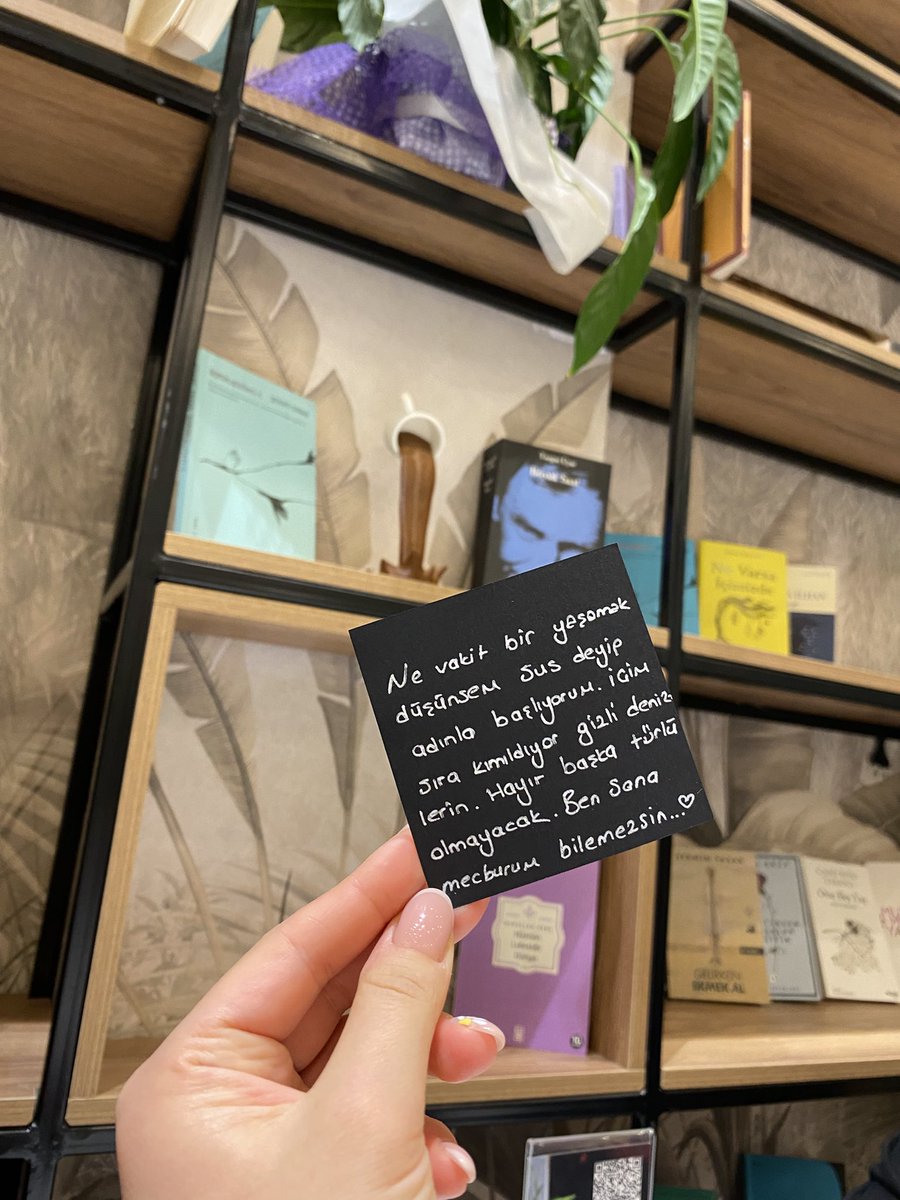 Ne vakit bir yaşamak
düşünsem sus deyip
adınla başlıyorum. içim
sıra kımıldıyor gizli deniz-
lerin. Hayır başka türlü
olmayacak. Ben sana
mecburum bilemezsin...♡
Ne Varsa
İçimizde
GELİRKEN
EKMEK AL